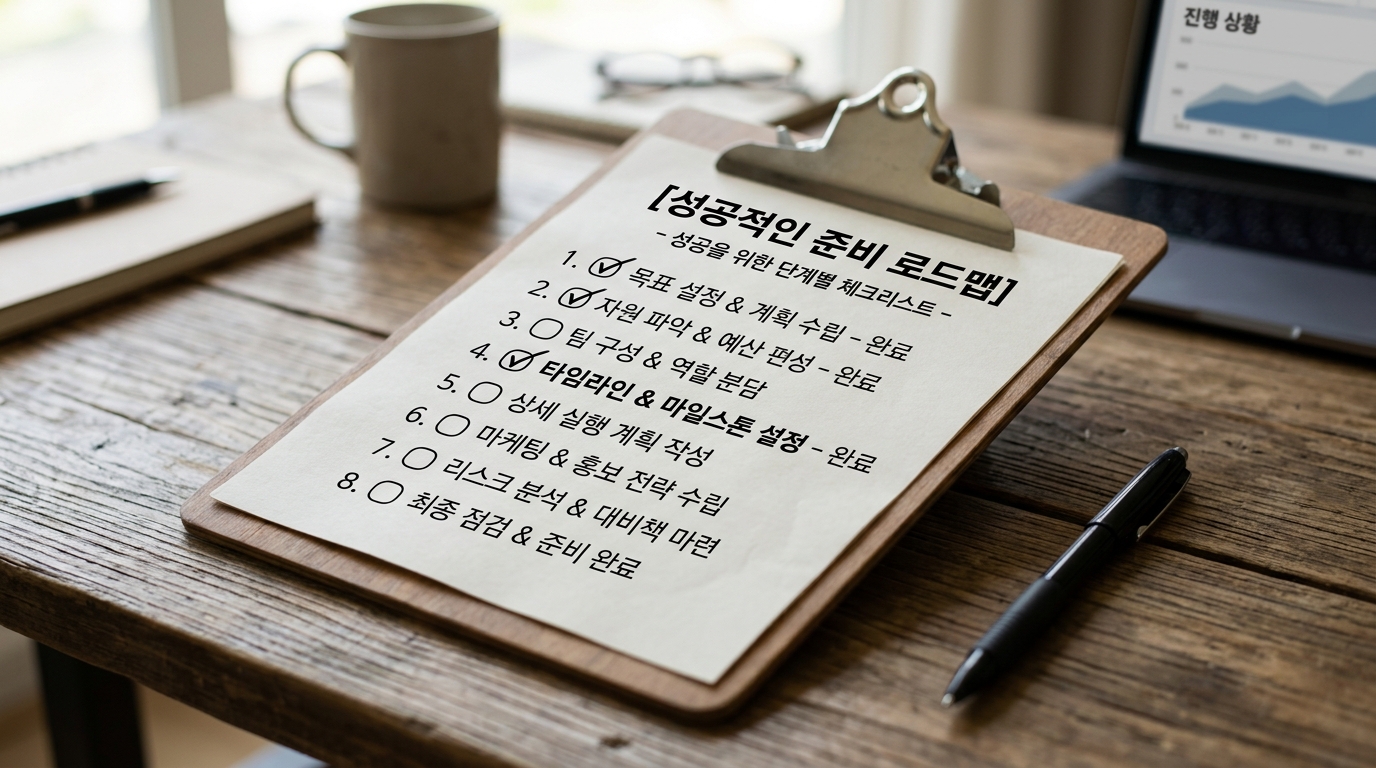 [성공적인 준비 로드맵]
- 성공을 위한 단계별 체크리스트 -
1. 목표 설정 & 계획 수립 - 완료
2. 자원 파악 & 예산 편성 - 완료
3. 팀 구성 & 역할 분담
4. 타임라인 & 마일스톤 설정 - 완료
5. 상세 실행 계획 작성
6. 마케팅 & 홍보 전략 수립
7. 리스크 분석 & 대비책 마련
8. 최종 점검 & 준비 완료
진행 상황